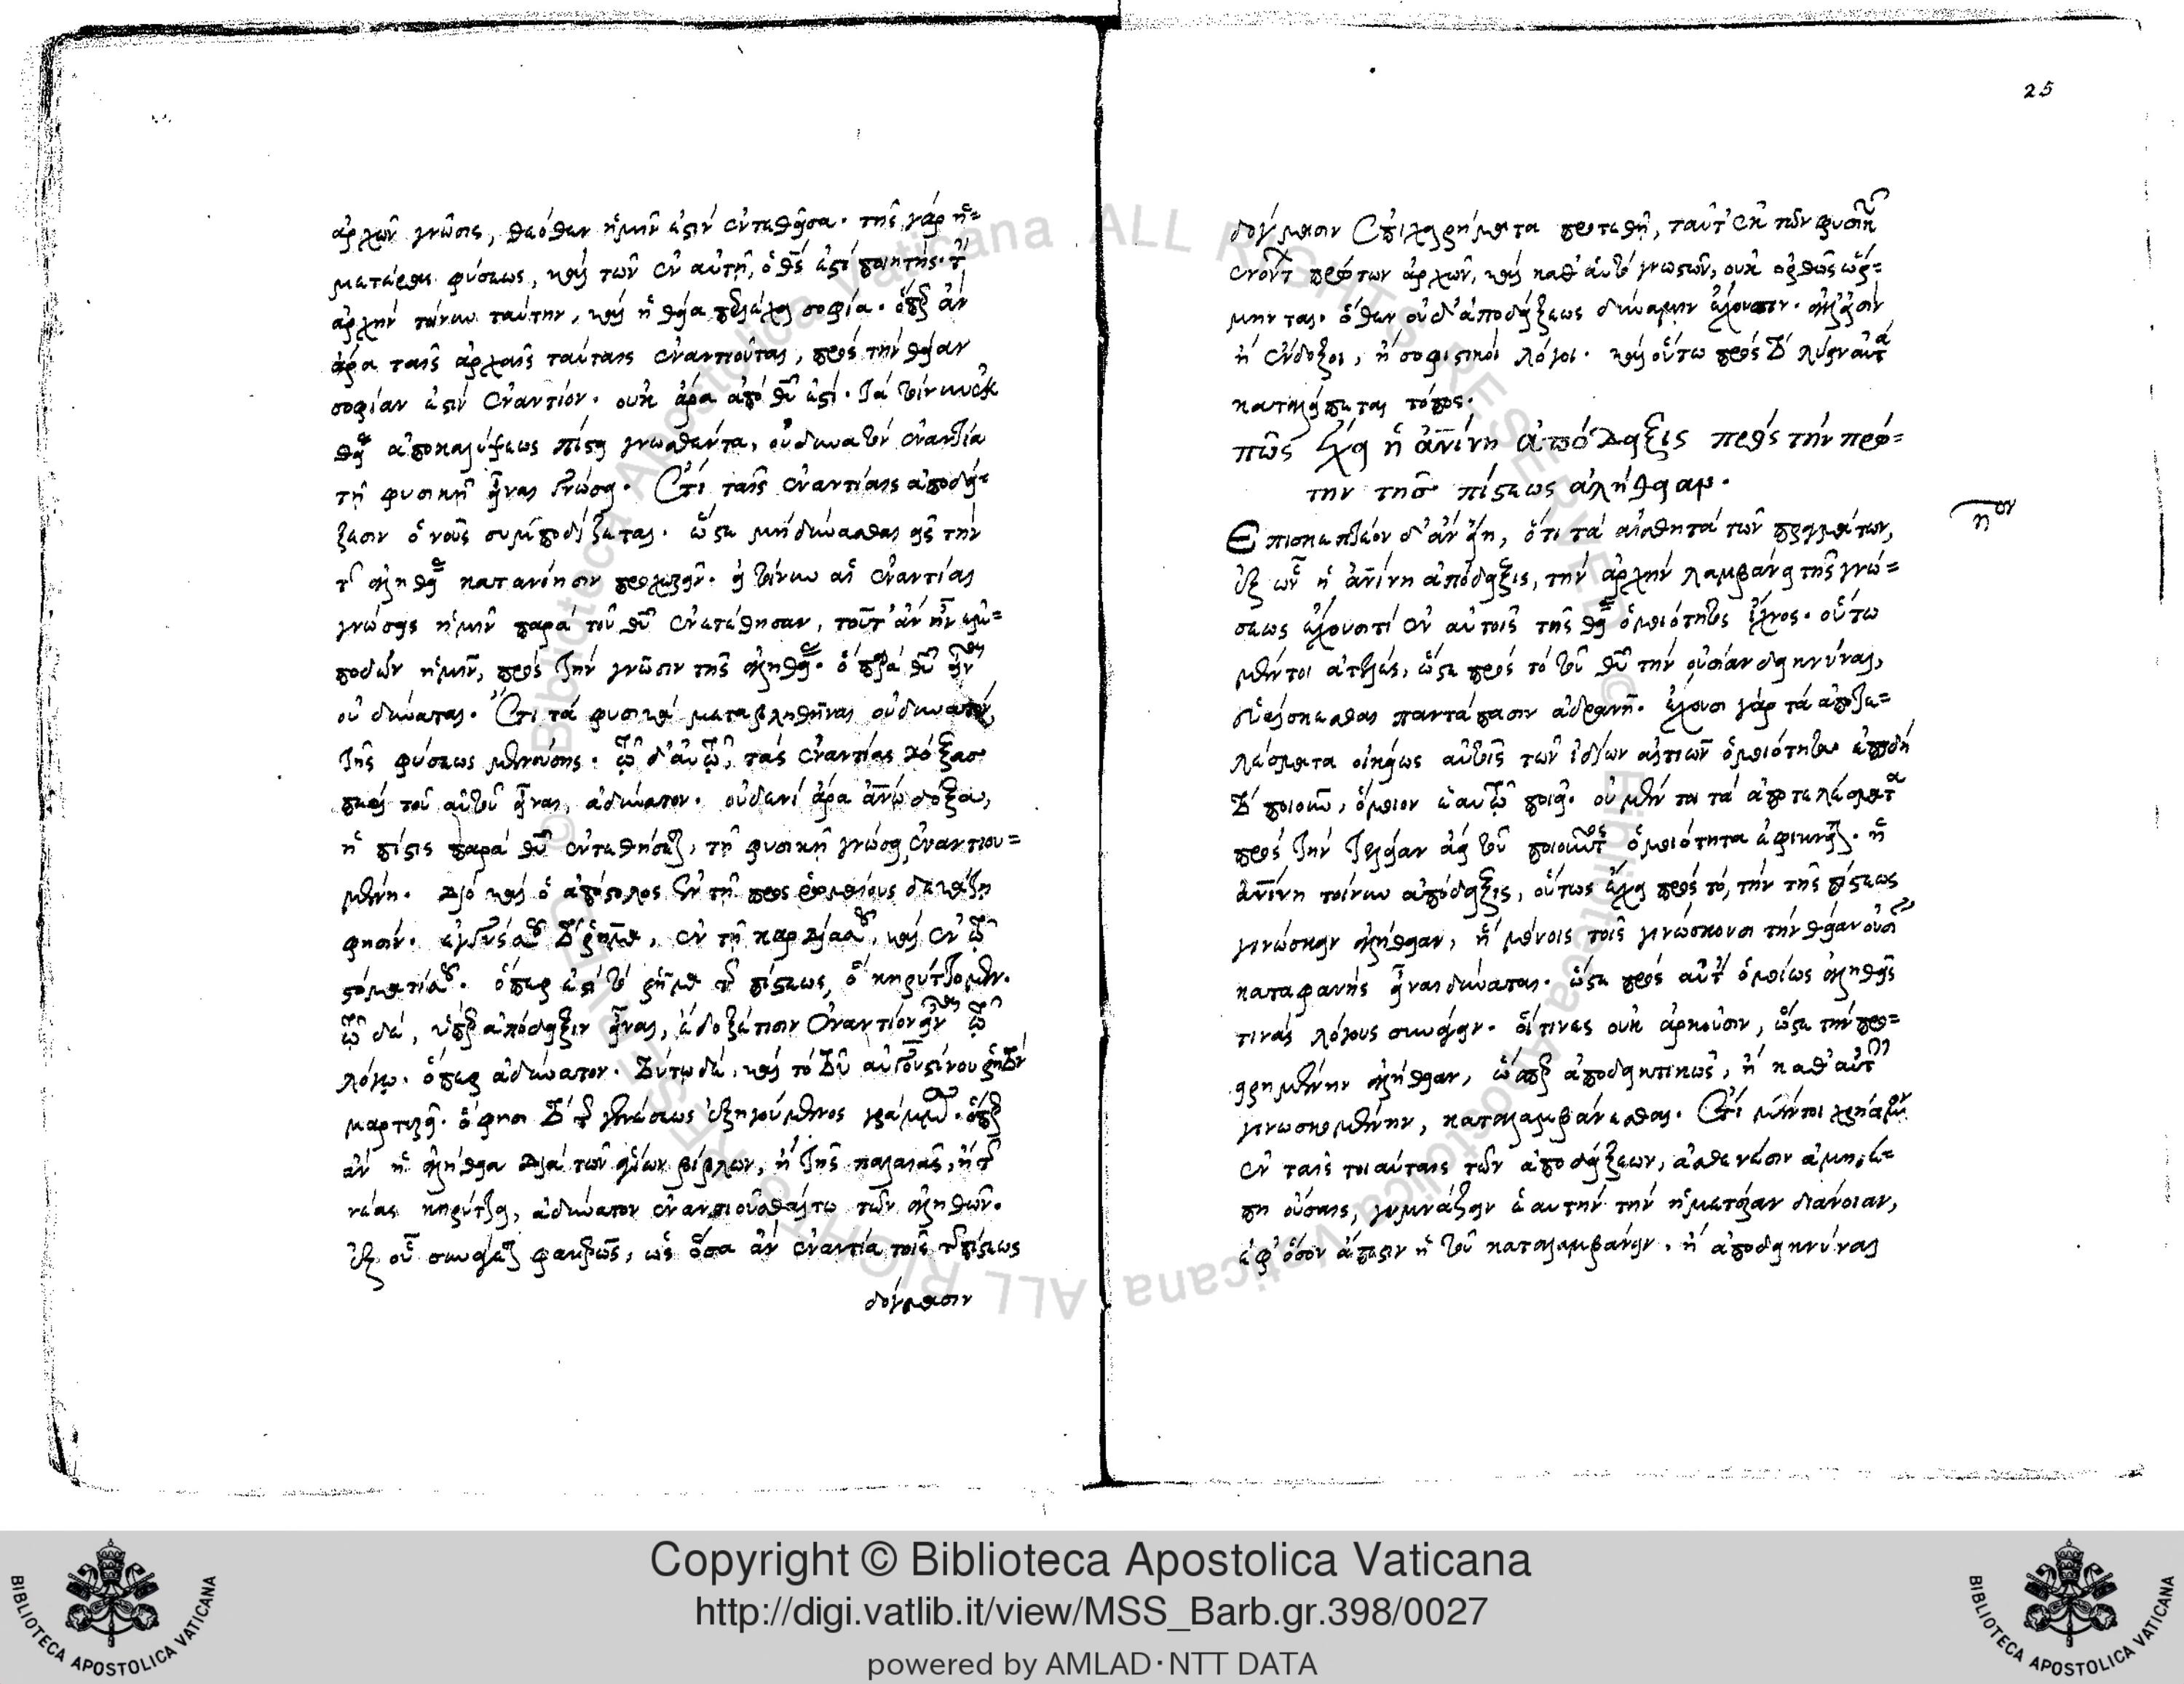 25
ἀρχῶν γνῶσις, θεόθεν ἡμῖν ἐστὶν ἐντεθεῖσα· τῆς γὰρ ἡ=
μετέρας φύσεως, καὶ τῶν ἐν αὐτῇ, ὁ θς ἐστὶ ποιητής· τ
ἀρχὴν τοίνυν ταύτην, καὶ ἡ θεία περιέχει σοφία· ὅπερ ἂν
ἄρα ταῖς ἀρχαῖς ταύταις ἐναντιοῦται, πρὸς τὴν θείαν
σοφίαν ἐστὶν ἐναντίον· οὐκ ἄρα ἀπὸ θυ ἐστί· τὰ τοίνυν ἐκ
θείας ἀποκαλύψεως πίστει γνωσθέντα, οὐ δυνατὸν ἐναντία
τῇ φυσικῇ εἶναι γνώσει· ἔτι ταῖς ἐναντίαις ἀποδεί=
ξεσιν ὁ νοῦς συμποδίζεται· ὥστε μὴ δύνασθαι εἰς τὴν
τ ἀληθείας κατανόησιν προχωρεῖν· εἰ τοίνυν αἱ ἐναντίαι
γνώσεις ἡμῖν παρὰ τοῦ θυ ἐνετέθησαν, τοῦτ ἂν ἦν ἐμ=
ποδὼν ἡμῖν, πρὸς τὴν γνῶσιν τῆς ἀληθείας· ὃ παρὰ θυ εἶναι
οὐ δύναται· ἔτι τὰ φυσικὰ μεταβληθῆναι οὐ δυνατόν,
τῆς φύσεως μενούσης· τῷ δ' αὐτῷ, τὰς ἐναντίας δόξας
περὶ τοῦ αὐτοῦ εἶναι, ἀδύνατον· οὐδεμί ἄρα ἀνω δόξα,
ἢ πίστις παρὰ θυ ἐντεθήσεται, τῇ φυσικῇ γνώσει ἐναντιου=
μένη· διὸ καὶ ὁ ἀπόστολος ἐν τῇ πρὸς ῥωμαίους δεκάτῃ
φησίν· ἐγγύς σου τὸ ῥῆμα, ἐν τῇ καρδίᾳ σου, καὶ ἐν τῷ
στόματί σου· ὅπερ ἐστὶ τὸ ῥῆμα τ πίστεως, ὃ κηρύττομεν·
τῷ δὲ, ὑπὲρ ἀπόδειξιν εἶναι, ἔδοξέ τισιν ἐναντίον εἶναι τῷ
λόγῳ· ὅπερ ἀδύνατον· τούτῳ δὲ, καὶ τὸ τοῦ αὐγουστίνου ῥητὸν
μαρτυρεῖ· ὅ φησι τὸ τ γενέσεως ἐξηγούμενος γράμμα· ὅπερ
ἂν ἡ ἀλήθεια διὰ τῶν θείων βίβλων, ἢ τῆς παλαιᾶς, ἢ τ
νέας κηρύττει, ἀδύνατον ἐναντιοῦσθαί τῳ τῶν ἀληθῶν·
ἐξ οὗ συνάγεται φανερῶς, ὡς ὅσα ἂν ἐναντία τοῖς τ πίστεως
δόγμασιν
δόγμασιν ἐπιχειρήματα προτεθῇ, ταῦτ' ἐκ τῶν φυσικῇ
ἐνόντ πρώτων ἀρχῶν, καὶ καθ' αὑτὸ γνωστῶν, οὐκ ὀρθῶς ὥρ=
μηνται· ὅθεν οὐδ' ἀποδείξεως δύναμιν ἔχουσιν· ἀλλ' εἰσὶν
ἢ ἔνδοξοι, ἢ σοφιστικοὶ λόγοι· καὶ οὕτω πρὸς τὸ λύειν αὐτὰ
καταλείπεται τόπος.
πῶς ἔχει ἡ ἀνίνη ἀπόδειξις πρὸς τὴν πρώ=
την τῆς πίστεως ἀλήθειαν.
ηον
Ἐπισκεπτέον δ' ἂν εἴη, ὅτι τὰ αἰσθητὰ τῶν πραγμάτων,
ἐξ ὧν ἡ ἀνίνη ἀπόδειξις, τὴν ἀρχὴν λαμβάνει τῆς γνώ=
σεως ἔχουσί τι ἐν αὑτοῖς τῆς θείας ὁμοιότητος ἴχνος· οὕτω
μέντοι ἀτελὲς, ὥστε πρὸς τὸ τοῦ θυ τὴν οὐσίαν δεικνύναι,
εὑρίσκεσθαι παντάπασιν ἀδρανῆ· ἔχουσι γὰρ τὰ ἀποτε=
λέσματα οἰκείως αὐτοῖς τῶν ἰδίων αἰτιῶν ὁμοιότητα ἐπειδὴ
τὸ ποιοῦν, ὅμοιον ἑαυτῷ ποιεῖ· οὐ μέντοι τὰ ἀποτελέσματα
πρὸς τὴν τελείαν ἀεὶ τοῦ ποιοῦντος ὁμοιότητα ἀφικνεῖται· ἡ
ἀνίνη τοίνυν ἀπόδειξις, οὕτως ἔχει πρὸς τὸ, τὴν τῆς πίστεως
γινώσκειν ἀλήθειαν, ἣ μόνοις τοῖς γινώσκουσι τὴν θείαν οὐσίαν
καταφανὴς εἶναι δύναται· ὥστε πρὸς αὐτ ὁμοίως ἀληθεῖς
τινὰς λόγους συνάγειν· οἵτινες οὐκ ἀρκοῦσιν, ὥστε τὴν προ=
ειρημένην ἀλήθειαν, ὥσπερ ἀποδεικτικῶς, ἢ καθ' αὑτὴν
γινωσκομένην, καταλαμβάνεσθαι· ἔτι μέντοι χρήσιμον
ἐν ταῖς τοιαύταις τῶν ἀποδείξεων, ἀσθενέσιν ἀμηγέ=
πη οὔσαις, γυμνάζειν ἑαυτὴν τὴν ἡμετέραν διάνοιαν,
ἐφ' ὅσον ἄπεσιν ἡ τοῦ καταλαμβάνειν, ἢ ἀποδεικνύναι
Copyright © Biblioteca Apostolica Vaticana
http://digi.vatlib.it/view/MSS_Barb.gr.398/0027
powered by AMLAD·NTT DATA
BIBLIOTECA APOSTOLICA VATICANA
BIBLIOTECA APOSTOLICA VATICANA